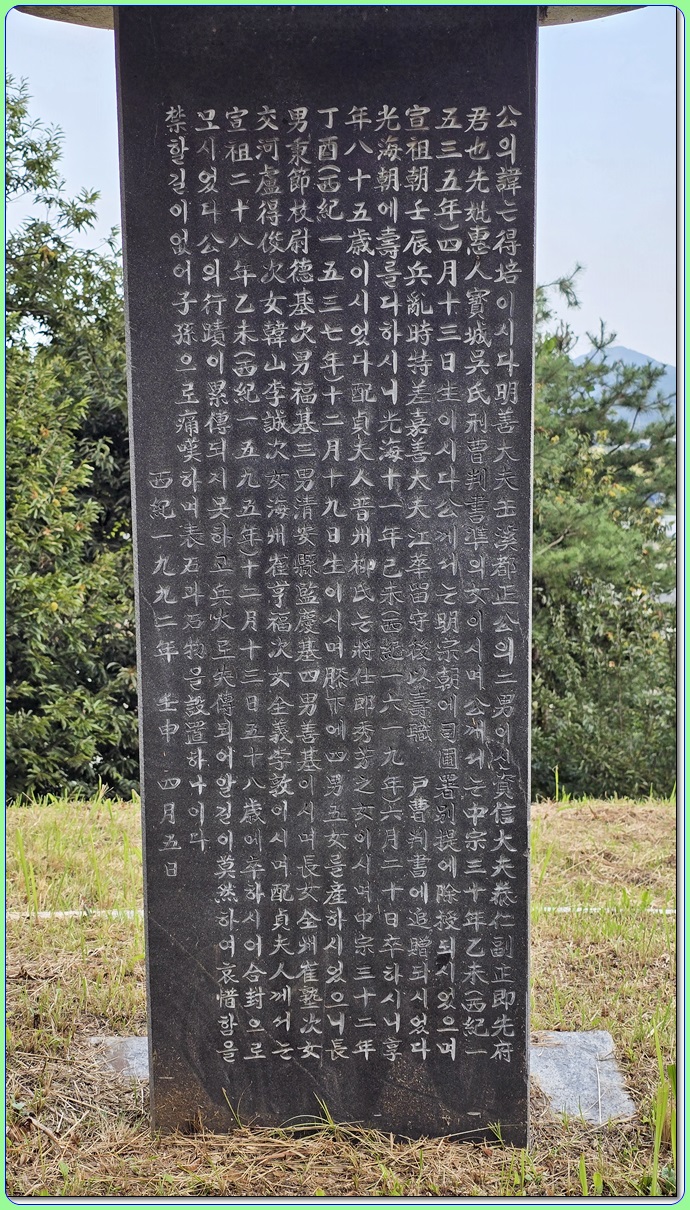 公의諱는得培이시다明善大夫玉溪都正公의二男이신資信大夫泰仁副正即先府
君也先妣惠人寶城吳氏刑曹判書準의女이시며公께서는中宗三十年乙未(西紀一
五三五年)四月十三日生이시다公께서는明宗朝에司圃署別提에除授되시었으며
宣祖朝壬辰兵亂時特差嘉善大夫江華留守後以壽職 戶曹判書에追贈되시었다
光海朝에壽를다하시니光海十一年己未(西紀一六一九年)六月二十日卒하시니享
年八十五歲이시었다配貞夫人晋州柳氏는將仕郎秀芳之女이시며中宗三十二年
丁酉(西紀一五三七年)十二月十九日生이시며膝下에四男五女를產하시었으니長
男秉節校尉德基次男福基三男清安縣監慶基四男善基이시며長女全州崔 次女
交河盧得俊次女韓山李誠次女海州崔亨福次女全義李敦이시며配貞夫人께서는
宣祖二十八年乙未(西紀一五九五年)十二月十三日五十八歲에卒하시어合封으로
모시었다公의行蹟이累傳되지못하고兵火로失傳되어알길이莫然하여哀惜함을
禁할길이없어子孫으로痛嘆하며表石과石物을設置하나이다
西紀一九九二年 壬申 四月五日